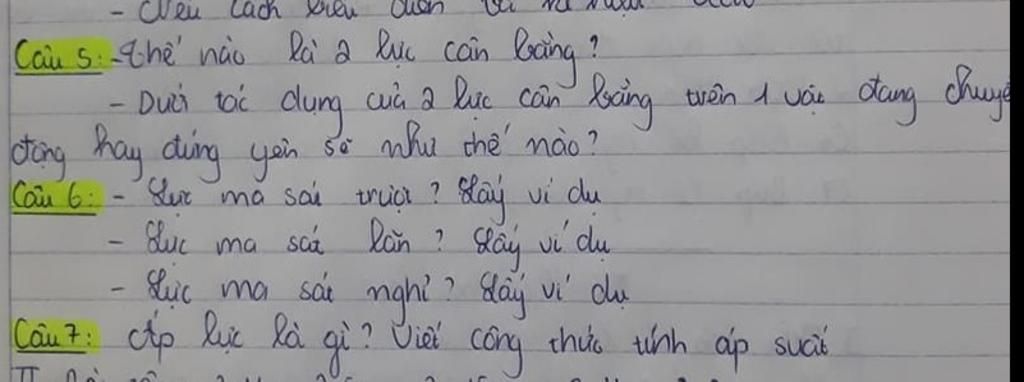 - Nêu cách biểu diễn và
Câu 5: - Thế nào là 2 lực cân bằng?
- Dưới tác dụng của 2 lực cân bằng trên 1 vật đang chuyể
động hay đứng yên sẽ như thế nào?
Câu 6: - Lực ma sát trượt? Lấy ví dụ
- Lực ma sát lăn? Lấy ví dụ
- Lực ma sát nghỉ? Lấy ví dụ
Câu 7: Áp lực là gì? Viết công thức tính áp suất
II